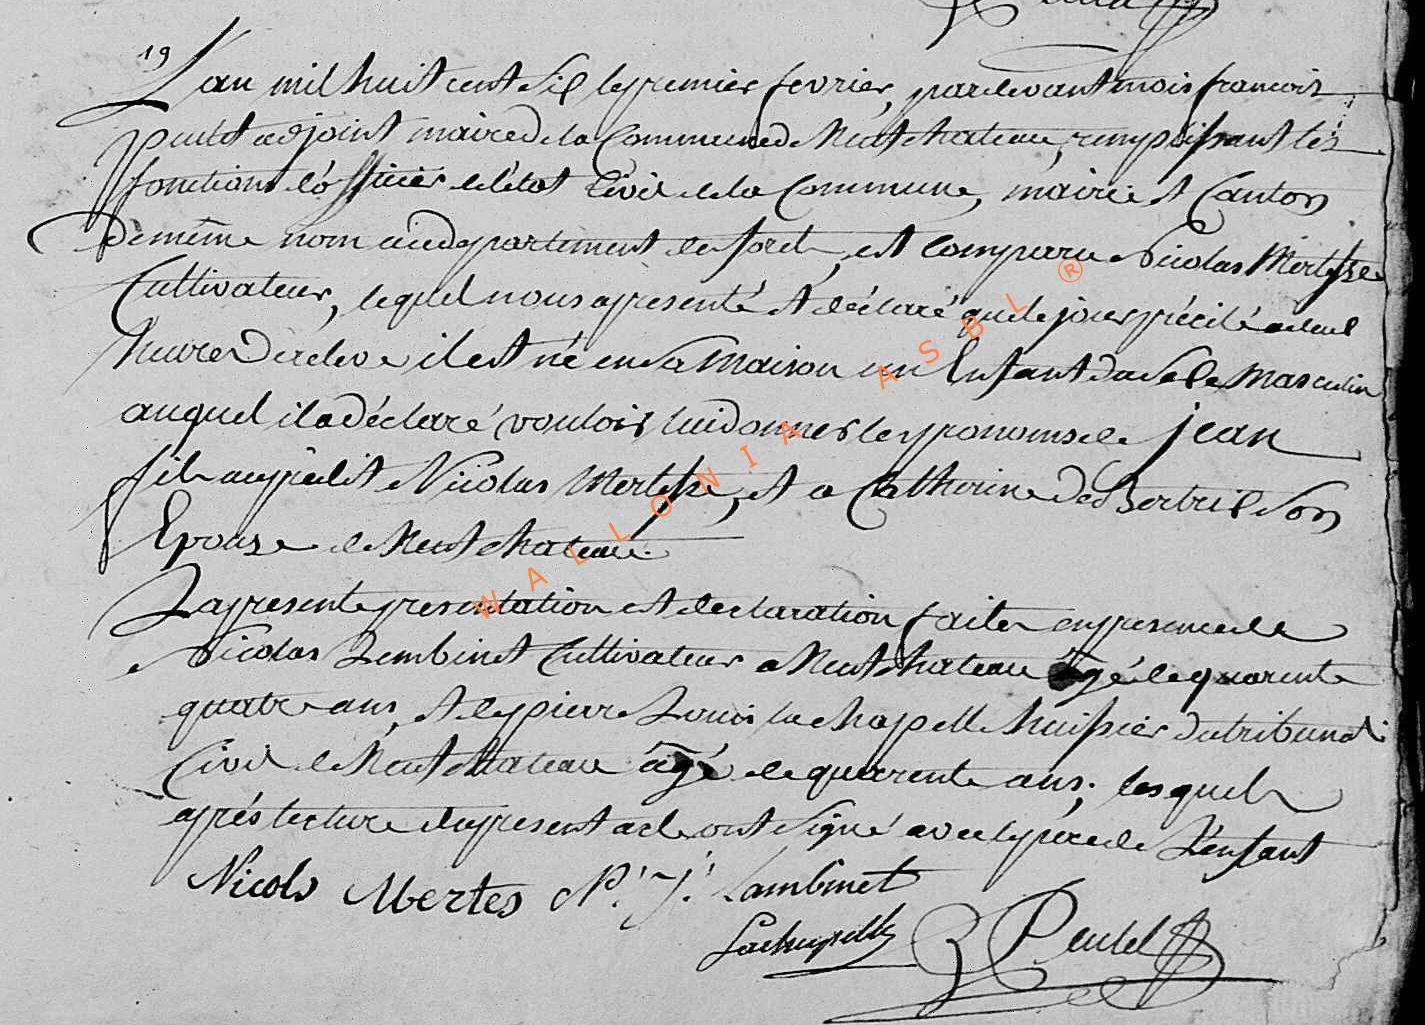 19
L'an mil huit cent six le premier fevrier, pardevant mois francois
adjoint maire de la Commune de Neufchateau, remplissant les
fonctions d'officier de l'état Civil de la Commune, mairie et Canton
de même nom au departement de foret, est comparu Nicolas Mertesse
Cultivateur, lequel nous a presenté et déclaré que le jour précité a deux
heures de releve il est né en sa maison un Enfant du sexe masculin
auquel il a déclaré vouloir lui donner les prenoms de jean
fils au prédit Nicolas Mertesse, et a Catherine son
Epouse de Neufchateau.
La presente presentation et declaration faites en presence de
Nicolas Lembinet Cultivateur a Neufchateau agé de quarente
quatre ans, et de pierre Louis la chapelle huissier du tribunal
Civil de Neufchateau âgé de quarente ans; lesquels
aprés lecture du present acte ont signé avec le pere de L'enfant
Nicols Mertes N. J. Lambinet
Lachapelle
WALLONIA ASBL ®